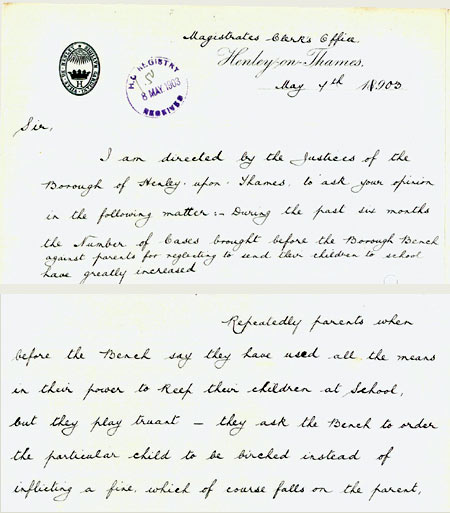 Magistrates Clerk's Office,
Henley-on-Thames.
May 7th 1903
H.O. REGISTRY
8 MAY. 1903
RECEIVED
Sir,
I am directed by the Justices of the
Borough of Henley-upon-Thames, to ask your opinion
in the following matter:- During the past six months
the Number of Cases brought before the Borough Bench
against parents for neglecting to send their children to school
have greatly increased
Repeatedly parents when
before the Bench say they have used all the means
in their power to keep their children at School,
but they play truant - they ask the Bench to order
the particular child to be birched instead of
inflicting a fine, which of course falls on the parent,